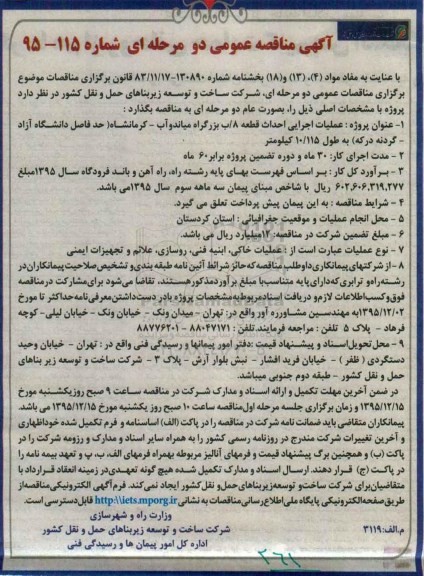 آگهی مناقصه عمومی دو مرحله ای شماره ۱۱۵- ۹۵
با عنایت به مفاد مواد (۴)، (۱۳) و(۱۸) بخشنامه شماره ۱۳۰۸۹۰-۸۳/۱۱/۱۷ قانون برگزاری مناقصات موضوع
برگزاری مناقصات عمومی دو مرحله ای، شرکت ساخت و توسعه زیربناهای حمل و نقل کشور در نظر دارد
پروژه با مشخصات اصلی ذیل را، بصورت عام دو مرحله ای به مناقصه بگذارد :
۱- عنوان پروژه : عملیات اجرایی احداث قطعه ۸/ب بزرگراه میاندوآب - کرمانشاه( حد فاصل دانشگاه آزاد
- گردنه درکه) به طول ۱۰/۱۱۵ کیلومتر
۲ - مدت اجرای کار: ۳۰ ماه و دوره تضمین پروژه برابر۶۰ ماه
۳ - بـرآورد کل کار : بر اساس فهرست بهای پایه رشته راه، راه آهن و باند فرودگاه سال ۱۳۹۵مبلغ
۶۰۲,۶۰۶,۳۱۹,۲۷۷ ریال با شاخص مبنای پیمان سه ماهه سوم سال ۱۳۹۵می باشد.
۴ - شرایط مناقصه : به این پیمان پیش پرداخت تعلق می گیرد.
۵ - محل انجام عملیات و موقعیت جغرافیائی : استان کردستان
۶ - مبلغ تضمین شرکت در مناقصه: ۱۲میلیارد ریال می باشد.
۷ - نوع عملیات عبارت است از : عملیات خاکی، ابنیه فنی، روسازی، علائم و تجهیزات ایمنی
۸ - از شرکتهای پیمانکاری داوطلب مناقصه که حائز شرائط آئین نامه طبقه بندی و تشخیص صلاحیت پیمانکاران در
رشته راه و ترابری که دارای پایه متناسب با مبلغ برآورد مذکور هستند، تقاضا می شود برای مشارکت در مناقصه
فوق و کسب اطلاعات لازم و دریافت اسناد مربوط به مشخصات پروژه با در دست داشتن معرفی نامه حداکثر تا مورخ
۱۳۹۵/۱۲/۰۲به مهندسین مشاور ره آور واقع در: تهران - میدان ونک - خیابان ونک - خیابان لیلی - کوچه
فرهاد - پلاک ۵ تلفن : مراجعه فرمایند.تلفن : ۸۸۰۴۷۱۷۱ - ۸۸۷۷۶۲۰۱
۹ - محل تحویل اسناد و پیشنهاد قیمت :دفتر امور پیمانها و رسیدگی فنی واقع در : تهران - خیابان وحید
دستگردی ( ظفر ) - خیابان فرید افشار - نبش بلوار آرش - پلاک ۳ - شرکت ساخت و توسعه زیر بناهای
حمل و نقل کشور - طبقه دوم جنوبی میباشد.
در ضمن آخرین مهلت تکمیل و ارائه اسناد و مدارک شـرکت در مناقصه ساعت ۹ صبح روزیکشنبه مورخ
۱۳۹۵/۱۲/۱۵ و زمان برگزاری جلسه مرحله اول مناقصه ساعت ۱۰ صبح روز یکشنبه مورخ ۱۳۹۵/۱۲/۱۵ می باشد.
پیمانکاران متقاضی باید ضمانت نامه شرکت در مناقصه را در پاکت (الف) اساسنامه و فرم تکمیل شده خوداظهاری
و آخرین تغییرات شرکت مندرج در روزنامه رسمی کشور را به همراه سایر اسناد و مدارک و رزومه شرکت را در
پاکت (ب) و همچنین برگ پیشنهاد قیمت و فرمهای آنالیز مربوطه بهمراه فرمهای الف، ب، پ و تعهد بیمه نامه را
در پاکت (ج) قرار دهند. ارسال اسناد و مدارک تکمیل شده هیچ گونه تعهدی در زمینه انعقاد قرارداد با
متقاضیان برای شرکت ساخت و توسعه زیربناهای حمل و نقل کشور ایجاد نمی کند. فرم آگهی الکترونیکی مناقصه از
طریق صفحه الکترونیکی پایگاه ملی اطلاع رسانی مناقصات به نشانی http\\iets.mporg.ir قابل دسترسی است.
وزارت راه و شهرسازی
شرکت ساخت و توسعه زیربناهای حمل و نقل کشور
اداره کل امور پیمان ها و رسیدگی فنی
م.الف: ۳۱۱۹
۲۶۱